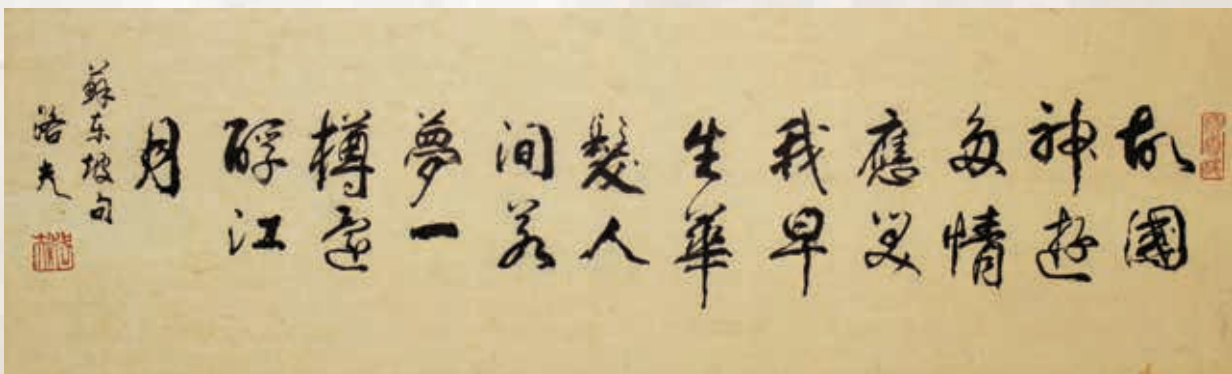 故國
神遊
多情
應笑
我早
生華
髮人
間若
夢一
樽還
酹江
月
蘇东坡句